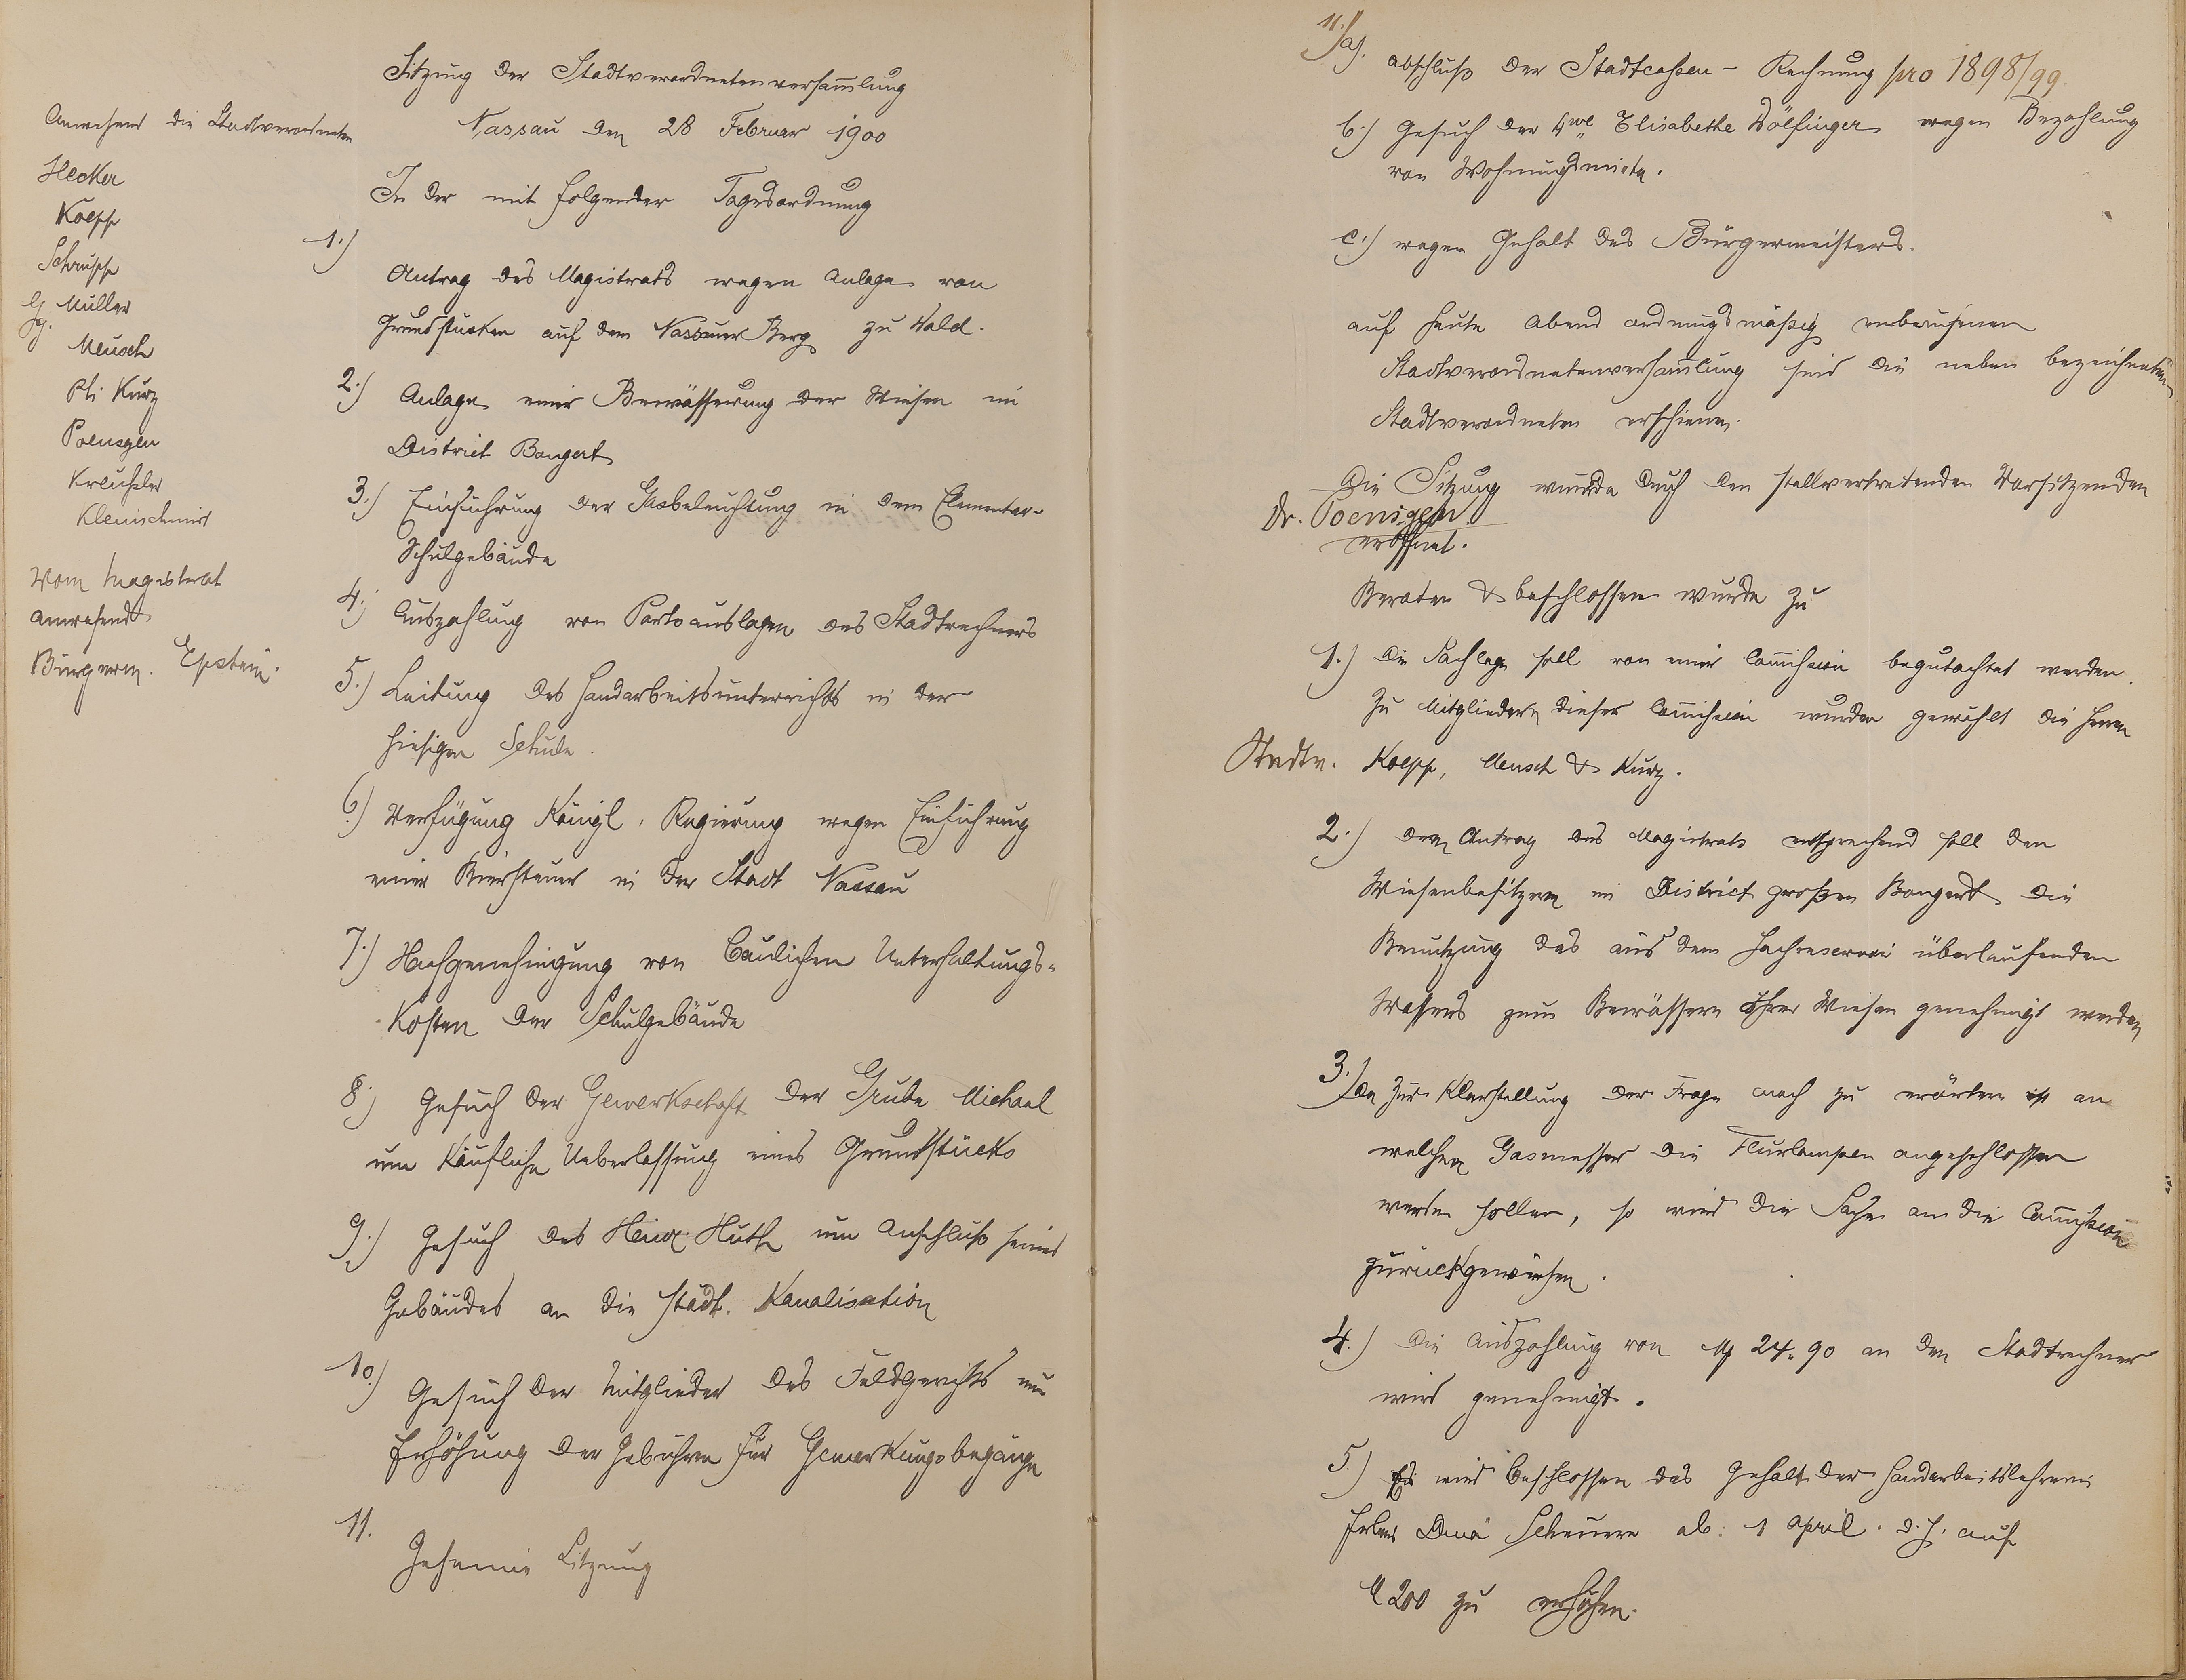 Sitzung der Stadtverordnetenversam̄lung
Nassau den 28 Februar 1900
Anwesend die Stadtverordneten
Hecker
Koepp
Schrupp
Gg. Müller
Meusch
Ph. Kurz
Poensgen
Kreußler
Kleinschmidt
Vom Magistrat
anwesend
Bürgerm. Epstein.
In der mit folgender Tagesordnung
1.)
Antrag des Magistrats wegen Anlage von
Grundstücken auf dem Nassauer Berg zu Wald.
2.) Anlage einer Bewässerung der Wiesen im
District Bongert
3.) Einführung der Gasbeleuchtung in dem Elementar-
Schulgebäude
4.) Auszahlung von Portoauslagen des Stadtrechners
5.) Leitung des Handarbeitsunterrichts in der
hiesigen Schule.
6.) Verfügung Königl. Regierung wegen Einführung
einer Biersteuer in der Stadt Nassau
7.) Nachgenehmigung von baulichen Unterhaltungs-
Kosten der Schulgebäude
8.) Gesuch der Gewerkschaft der Grube Michael
um käufliche Ueberlassung eines Grundstücks
9.) Gesuch des Heinr. Huth um Anschluß seines
Gebäudes an die städt. Kanalisation
10.) Gesuch der Mitglieder des Feldgerichts um
Erhöhung der Gebühren für Gemarkungsbegänge
11.
Geheime Sitzung
11.) a). Abschluß der Stadtcassen-Rechnung pro 1898/99.
b.) Gesuch der Elisabethe Dölfinger wegen Bezahlung
von Wohnungsmiete.
c.) wegen Gehalt des Bürgermeisters.
auf heute Abend ordnungsmäßig einberufenen
Stadtverordnetenversam̄lung sind die neben bezeichneten
Stadtverordneten erschienen.
Die Sitzung wurde durch den stellvertretenden Vorsitzenden
Dr. Poensgen
eröffnet.
Beraten & beschlossen wurde zu
1.) Die Sachlage soll von einer Com̄ission begutachtet werden.
Zu Mitgliedern dieser Com̄ission wurden gewählt die Herren
Stadtv. Koepp, Meusch & Kurz.
2.) Dem Antrag des Magistrats entsprechend soll den
Wiesenbesitzern im District großen Bongert die
Benutzung des aus dem Hochreservoir überlaufenden
Wassers zum Bewässern Ihrer Wiesen genehmigt werden
3.) Da zur Klarstellung der Frage noch zu erörtern ist an
welchen Gasmesser die Flurlampen angeschlossen
werden sollen, so wird die Sache an die Com̄ission
zurückgewiesen.
4.) Die Auszahlung von M 24.90 an den Stadtrechner
wird genehmigt.
5.) Es wird beschlossen das Gehalt der Handarbeitslehrerin
Scheuern ab: 1 April d. J. auf
M 200 zu erhöhen.